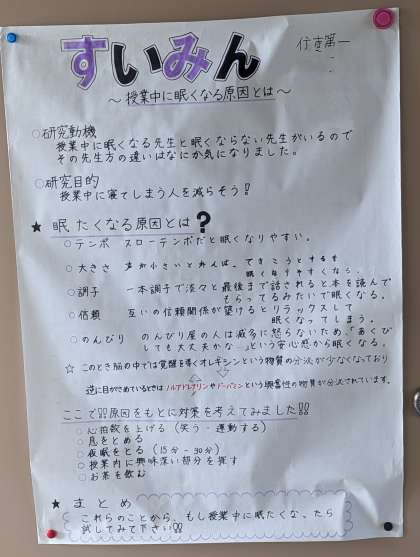 すいみん
～授業中に眠くなる原因とは～
○研究動機
授業中に眠くなる先生と眠くならない先生がいるので
その先生方の違いはなにか気になりました。
○研究目的
授業中に寝てしまう人を減らそう!
★ 眠たくなる原因とは?
○テンポ スローテンポだと眠くなりやすい。
○大きさ 声が小さい
眠くなりやすくなる。
○調子 一本調子で淡々と最後まで話されると本を読んで
もらってるみたいで眠くなる。
○信頼 互いの信頼関係が築けるとリラックスして
眠くなってしまう。
○のんびり のんびり屋の人は滅多に怒らないため、「あくび
しても大丈夫かな…」という安い思から眠くなる。
☆このとき脳の中では覚醒を導くオレキシンという物質の分泌が少なくなっており
逆に目がさめているときはノルアドレナリンやドーパミンという興奮性の物質が分泌されています。
ここで!!原因をもとに対策を考えてみました!!
○心拍数を上げる(笑う・運動する)
○息をとめる
○夜眠をとる(15分-30分)
○授業内に興味深い部分を探す
○お茶を飲む
★ まとめ
これらのことから、もし授業中に眠たくな、たら
試してみて下さい!!